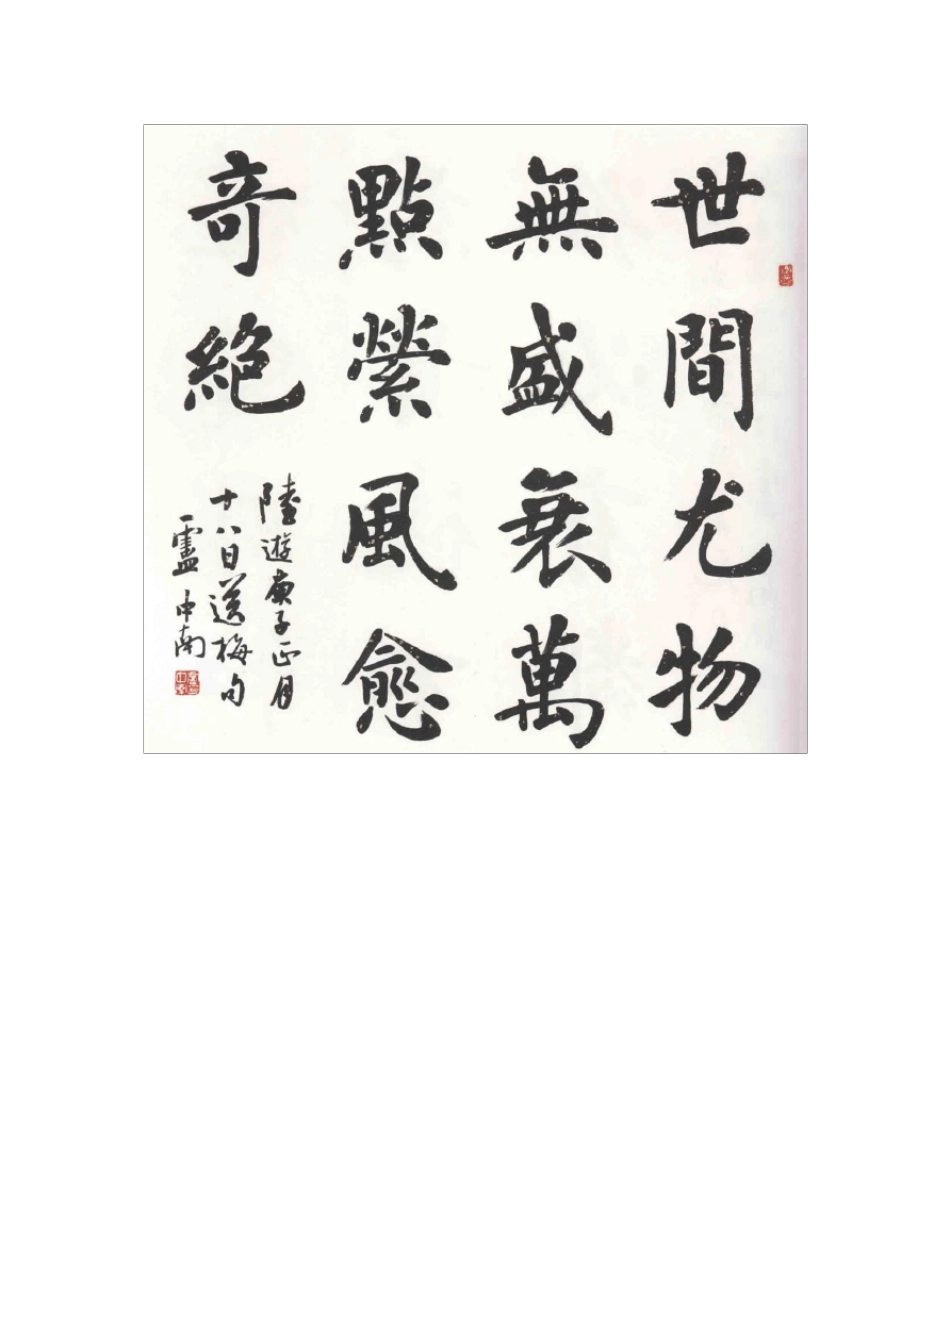 世間尤物
無盛衰萬
點縈風愈
奇絕
陸遊庚子正月
十八日送梅句
盧中南